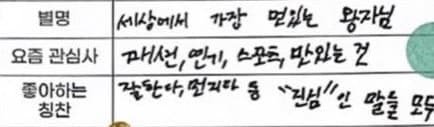 별명 세상에서 가장 멋있는 왕자님
요즘 관심사 패션, 연기, 스포츠, 맛있는 것
좋아하는 칭찬 잘한다, 멋지다 등 "진심"인 말들 모두